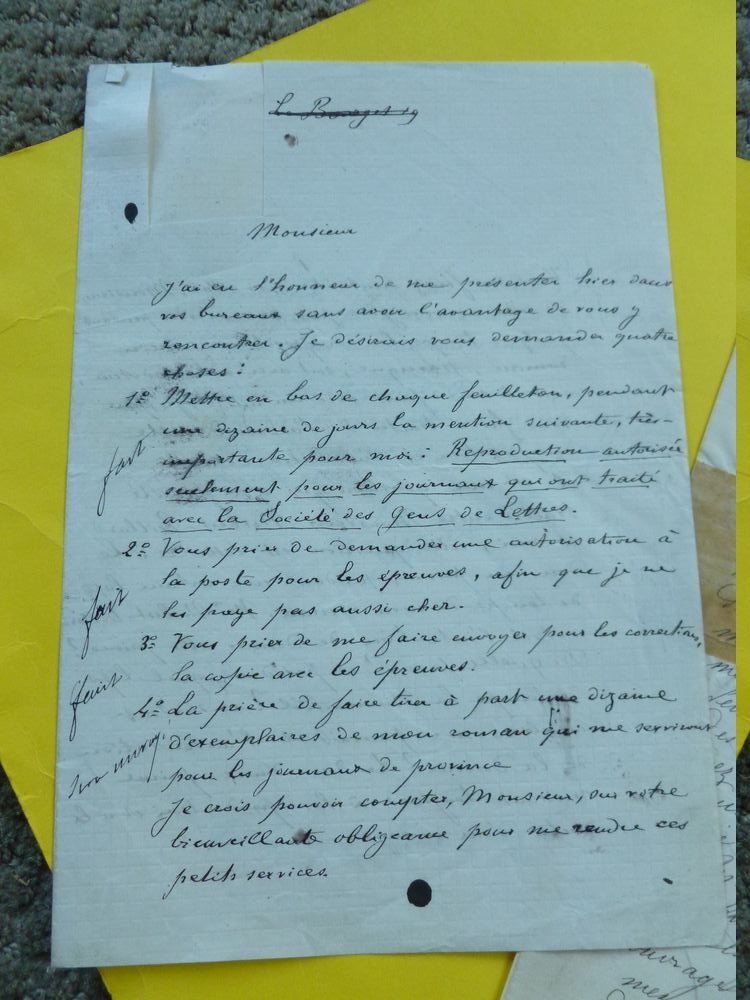 Le Bourget 19
Monsieur
J'ai eu l'honneur de me présenter hier dans
vos bureaux sans avoir l'avantage de vous y
rencontrer. Je désirais vous demander quatre
choses :
1º Mettre en bas de chaque feuilleton, pendant
une dizaine de jours la mention suivante, très-
importante pour moi : Reproduction autorisée
seulement pour les journaux qui ont traité
avec la Société des Gens de Lettres.
fait
2º Vous prier de demander une autorisation à
la poste pour les épreuves, afin que je ne
les paye pas aussi cher.
fait
3º Vous prier de me faire envoyer pour les corrections,
la copie avec les épreuves.
fait
4º La prière de faire tirer à part une dizaine
d'exemplaires de mon roman qui me serviront
pour les journaux de province
non
Je crois pouvoir compter, Monsieur, sur votre
bienveillante obligeance pour me rendre ces
petits services.